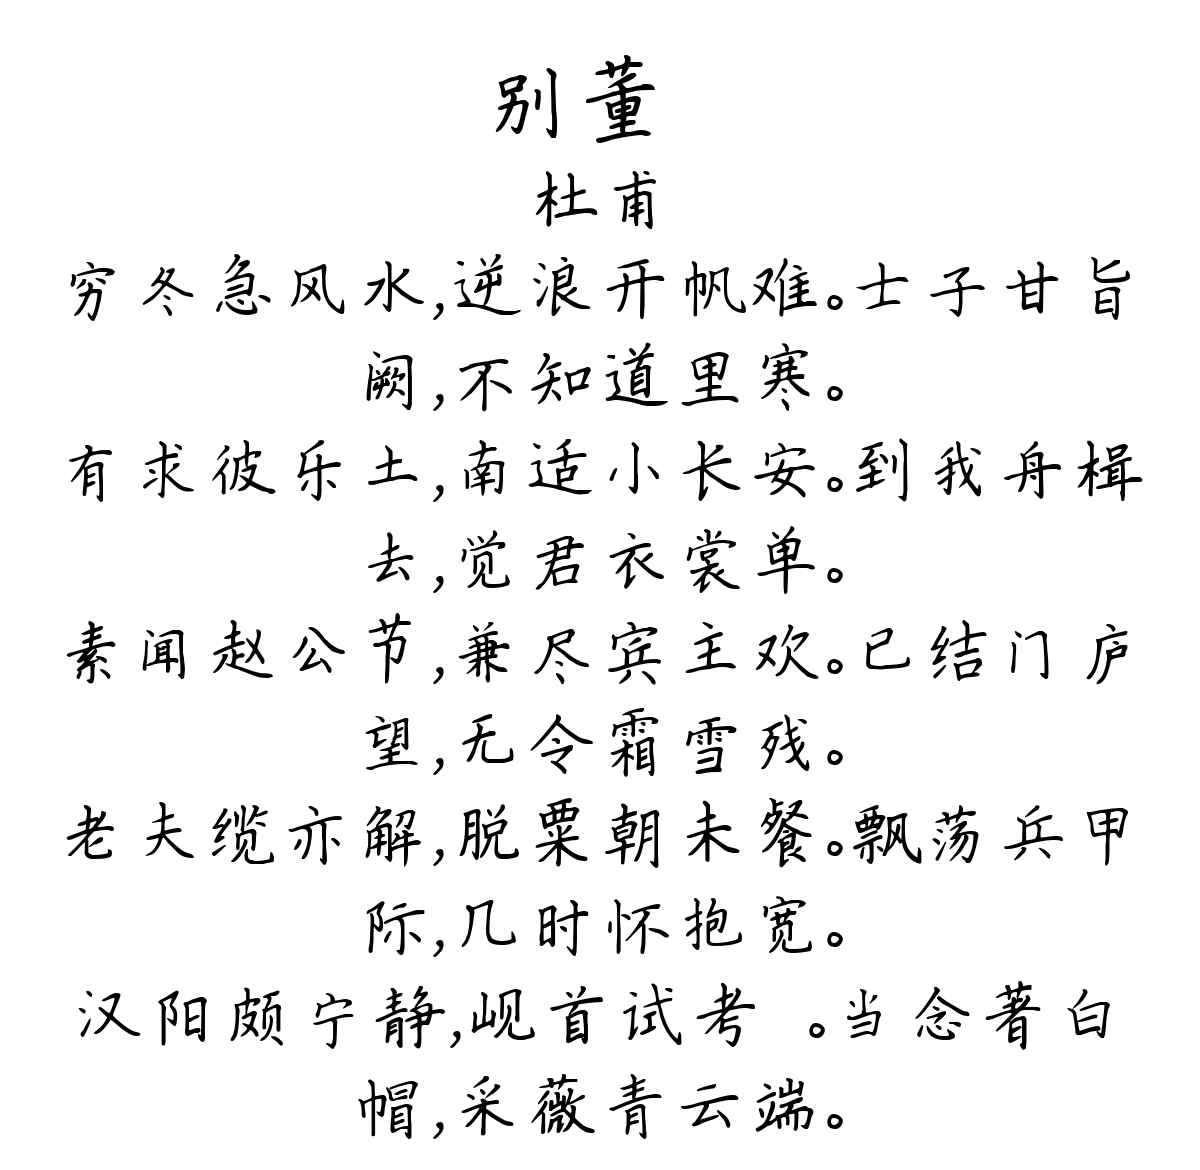 别董
杜甫
穷冬急风水,逆浪开帆难。士子甘旨
阙,不知道里寒。
有求彼乐土,南适小长安。到我舟楫
去,觉君衣裳单。
素闻赵公节,兼尽宾主欢。已结门庐
望,无令霜雪残。
老夫缆亦解,脱粟朝未餐。飘荡兵甲
际,几时怀抱宽。
汉阳颇宁静,岘首试考 。当念著白
帽,采薇青云端。